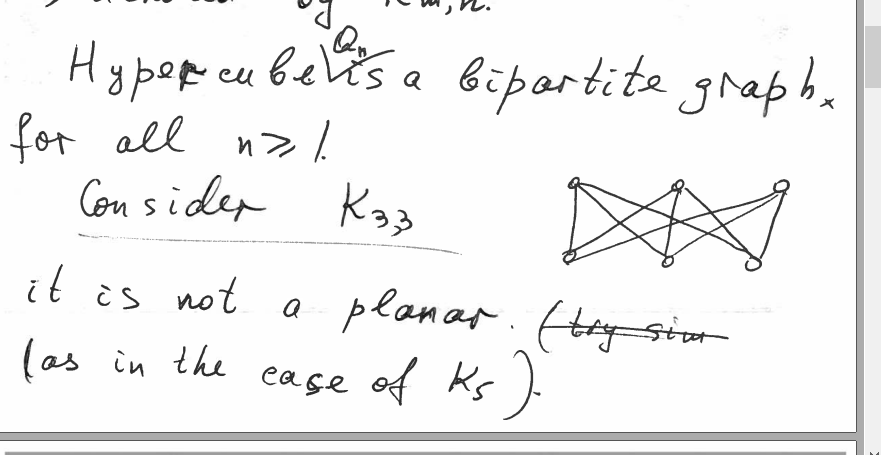 by Km,n.
Hypercube Qn is a bipartite graph
for all n ≥ 1.
Consider K3,3
it is not a planar. (try sim
(as in the case of K5).